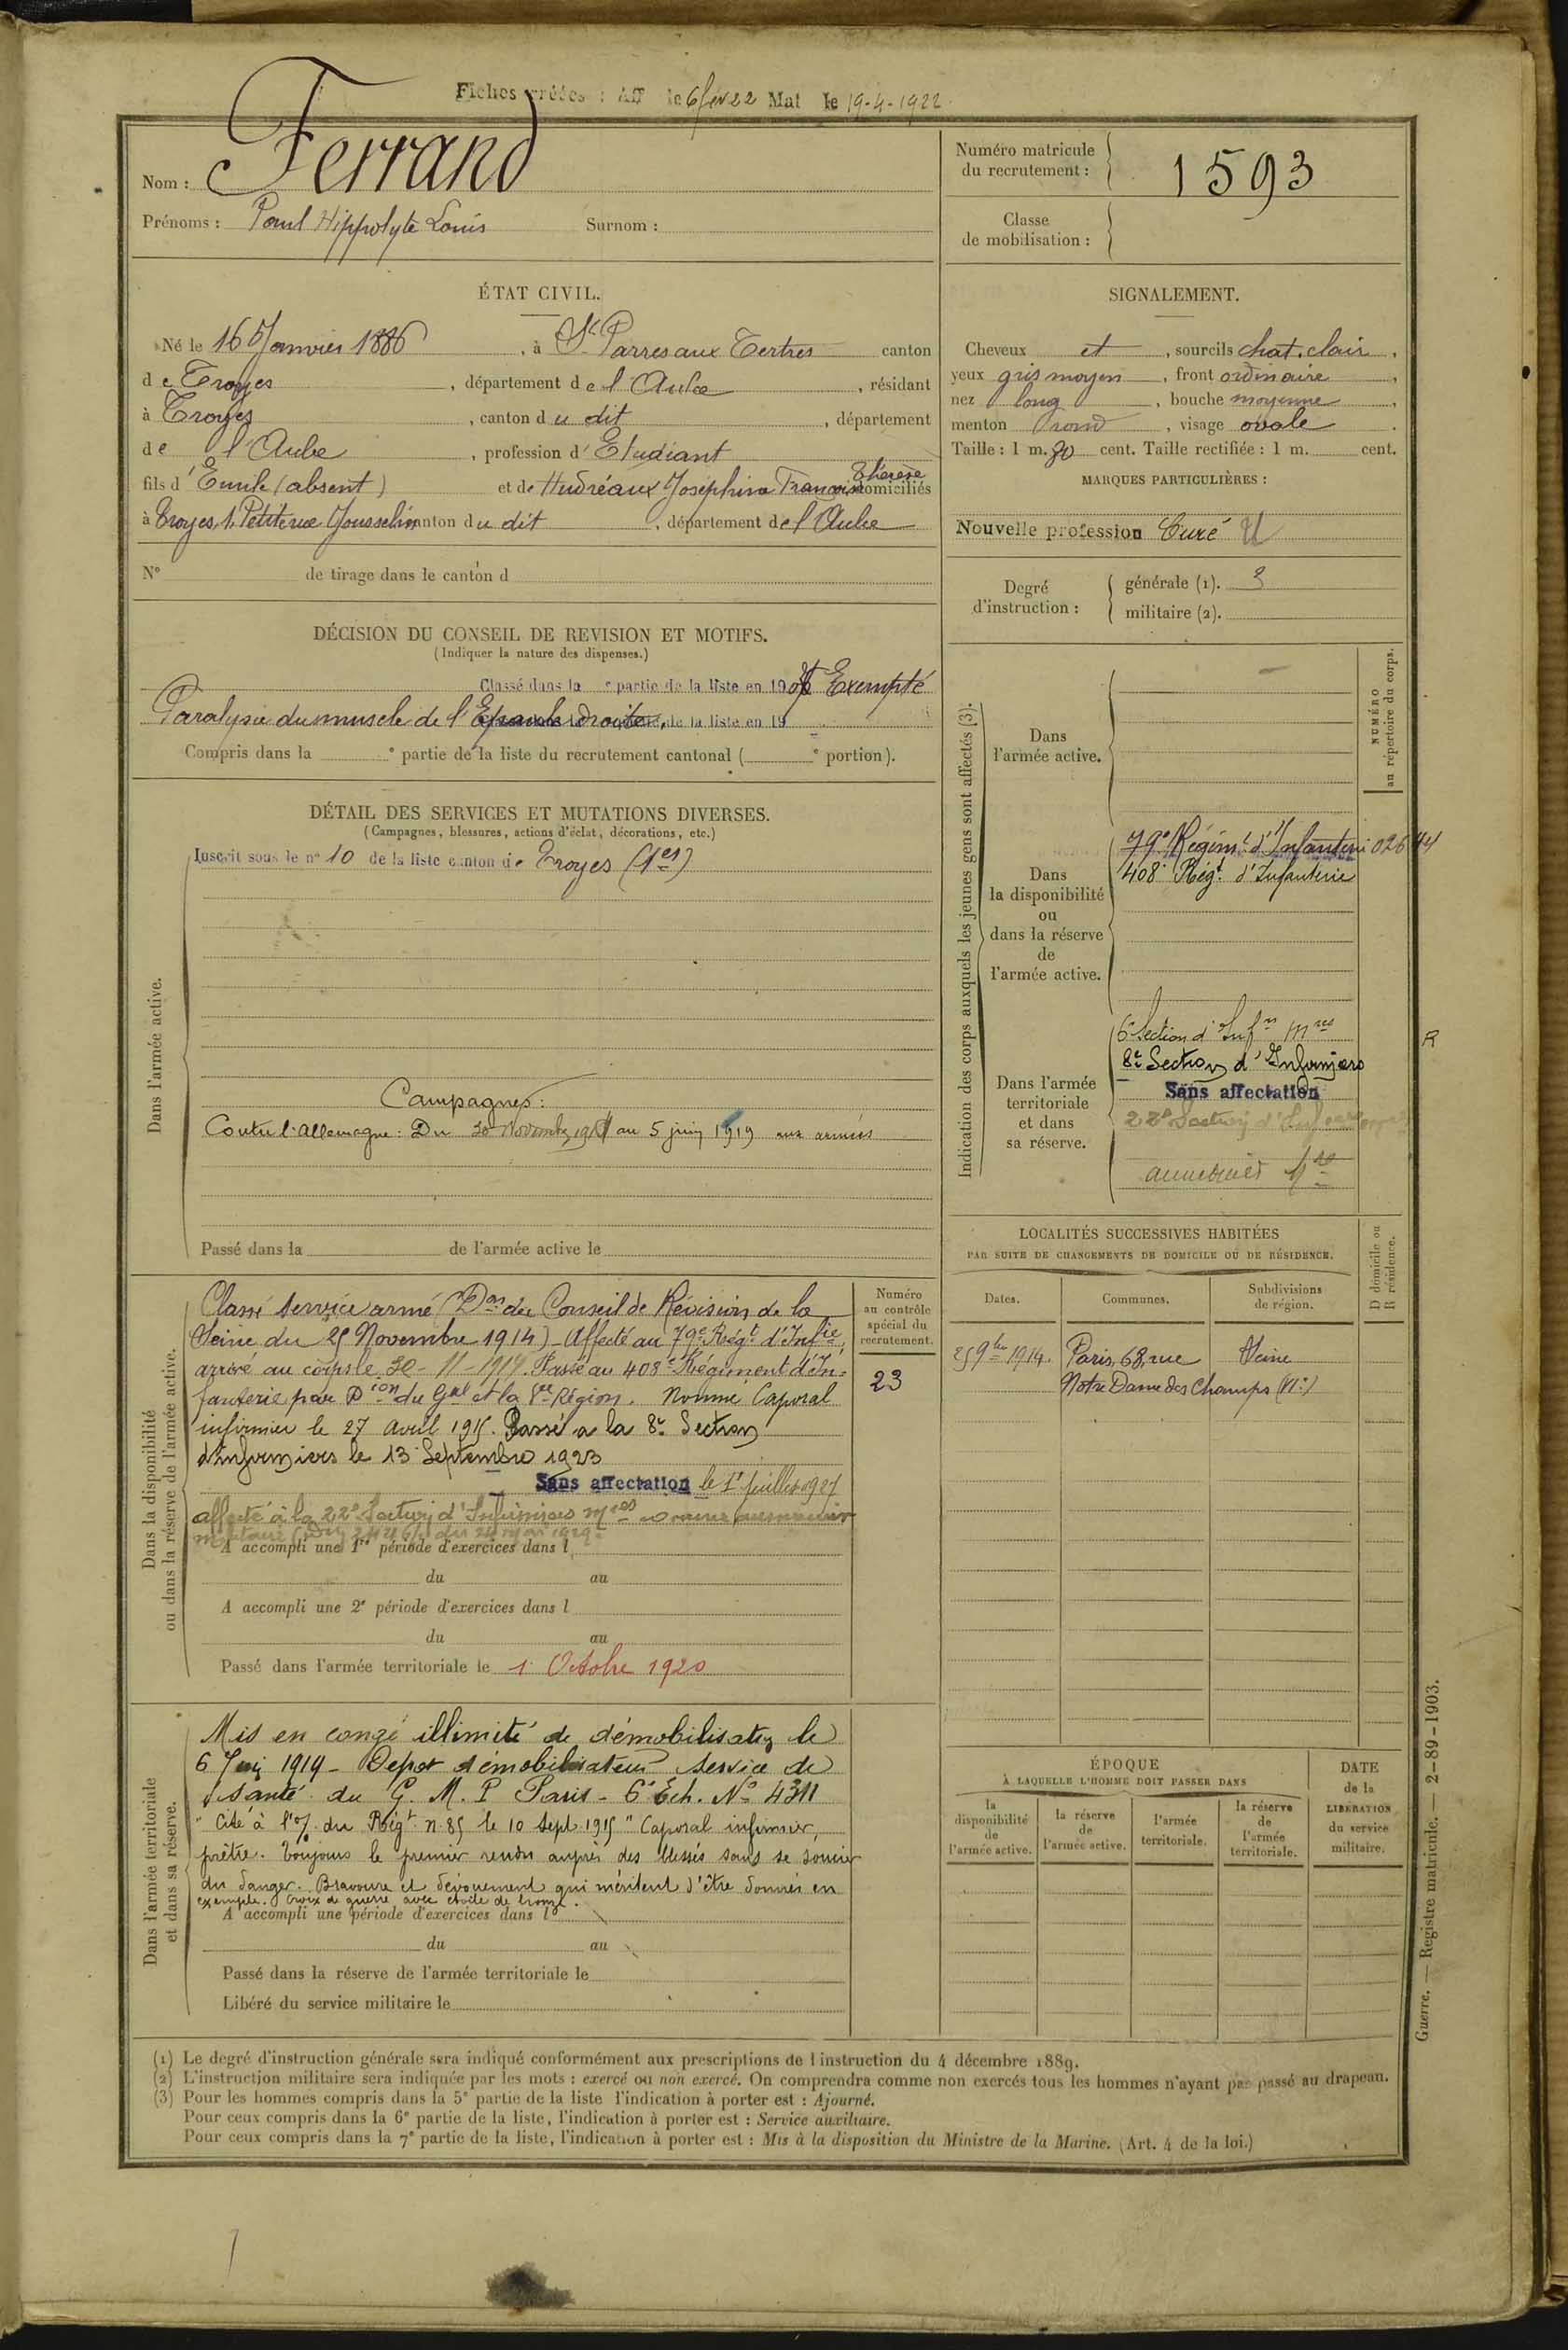 Fiches créées : Aff le 6 fev 22 Mat le 19-4-1922
Nom : Ferrand
Prénoms : Paul Hippolyte Louis Surnom :
Numéro matricule du recrutement : 1593
Classe de mobilisation :
ÉTAT CIVIL.
Né le 16 Janvier 1886, à St Parres aux Tertres canton
de Troyes, département de l'Aube, résidant
à Troyes, canton du dit, département
de l'Aube, profession d'Etudiant
fils d'Emile (absent) et de Hudréaux Joséphine Françoise Thérèse domiciliés
à Troyes, 1, Petite rue Gousselin canton du dit, département de l'Aube
N° de tirage dans le canton d
SIGNALEMENT.
Cheveux et, sourcils chat. clair,
yeux gris moyen, front ordinaire,
nez long, bouche moyenne,
menton rond, visage ovale.
Taille : 1 m. 70 cent. Taille rectifiée : 1 m. cent.
MARQUES PARTICULIÈRES :
Nouvelle profession Curé
Degré d'instruction : générale (1). 3
militaire (2).
DÉCISION DU CONSEIL DE REVISION ET MOTIFS.
(Indiquer la nature des dispenses.)
Classé dans la e partie de la liste en 190 Exempté
Paralysie du muscle de l'Epaule droite. de la liste en 19
Compris dans la e partie de la liste du recrutement cantonal ( e portion).
DÉTAIL DES SERVICES ET MUTATIONS DIVERSES.
(Campagnes, blessures, actions d'éclat, décorations, etc.)
Dans l'armée active.
Inscrit sous le n° 10 de la liste canton de Troyes (1er)
Campagnes :
Contre l'Allemagne : Du 30 Novembre 1914 au 5 juin 1919 aux armées
Passé dans la de l'armée active le
Indication des corps auxquels les jeunes gens sont affectés (3).
NUMÉRO
au répertoire du corps.
Dans
l'armée active.
Dans
la disponibilité
ou
dans la réserve
de
l'armée active.
79e Régimt d'Infanterie 02644
408e Régt d'Infanterie
Dans l'armée
territoriale
et dans
sa réserve.
6e Section d'Infrs Mres
R
8e Section d'Infirmiers
Sans affectation
22e Section d'Inf
Dans la disponibilité
ou dans la réserve de l'armée active.
Classé service armé (Don du Conseil de Révision de la
Seine du 25 Novembre 1914) - Affecté au 79e Régt d'Infie,
arrivé au corps le 30-11-1914. Passé au 408e Régiment d'In-
fanterie par Dion du Gal Ct la Région. Nommé Caporal
infirmier le 27 avril 1915. Passé à la 8e Section
d'Infirmiers le 13 Septembre 1923
Sans affectation le 1r juillet 1927
affecté à la 22e Section d'Infirmiers Mres comme
A accompli une 1re période d'exercices dans l
du au
A accompli une 2e période d'exercices dans l
du au
Passé dans l'armée territoriale le 1r Octobre 1920
Numéro
au contrôle
spécial du
recrutement.
23
LOCALITÉS SUCCESSIVES HABITÉES
PAR SUITE DE CHANGEMENTS DE DOMICILE OU DE RÉSIDENCE.
D domicile ou
R résidence.
Dates. Communes. Subdivisions de région.
25 9bre 1914. Paris, 68, rue Seine
Notre Dame des Champs (VIe)
Dans l'armée territoriale
et dans sa réserve.
Mis en congé illimité de démobilisation le
6 Juin 1919 - Dépot démobilisateur Service de
Santé du G. M. P Paris - 6e Ech. N° 4311
"Cité à l'o/ du Régt n 85 le 10 Sept 1915 "Caporal infirmier,
prêtre. Toujours le premier rendu auprès des blessés sans se soucier
du danger. Bravoure et dévouement qui méritent d'être donnés en
exemple. Croix de guerre avec étoile de bronze.
A accompli une période d'exercices dans l
du au
Passé dans la réserve de l'armée territoriale le
Libéré du service militaire le
ÉPOQUE
À LAQUELLE L'HOMME DOIT PASSER DANS
la disponibilité de l'armée active.
la réserve de l'armée active.
l'armée territoriale.
la réserve de l'armée territoriale.
DATE
de la
LIBÉRATION
du service
militaire.
(1) Le degré d'instruction générale sera indiqué conformément aux prescriptions de l'instruction du 4 décembre 1889.
(2) L'instruction militaire sera indiquée par les mots : exercé ou non exercé. On comprendra comme non exercés tous les hommes n'ayant pas passé au drapeau.
(3) Pour les hommes compris dans la 5e partie de la liste l'indication à porter est : Ajourné.
Pour ceux compris dans la 6e partie de la liste, l'indication à porter est : Service auxiliaire.
Pour ceux compris dans la 7e partie de la liste, l'indication à porter est : Mis à la disposition du Ministre de la Marine. (Art. 4 de la loi.)
Guerre. — Registre matricule. — 2-89-1903.